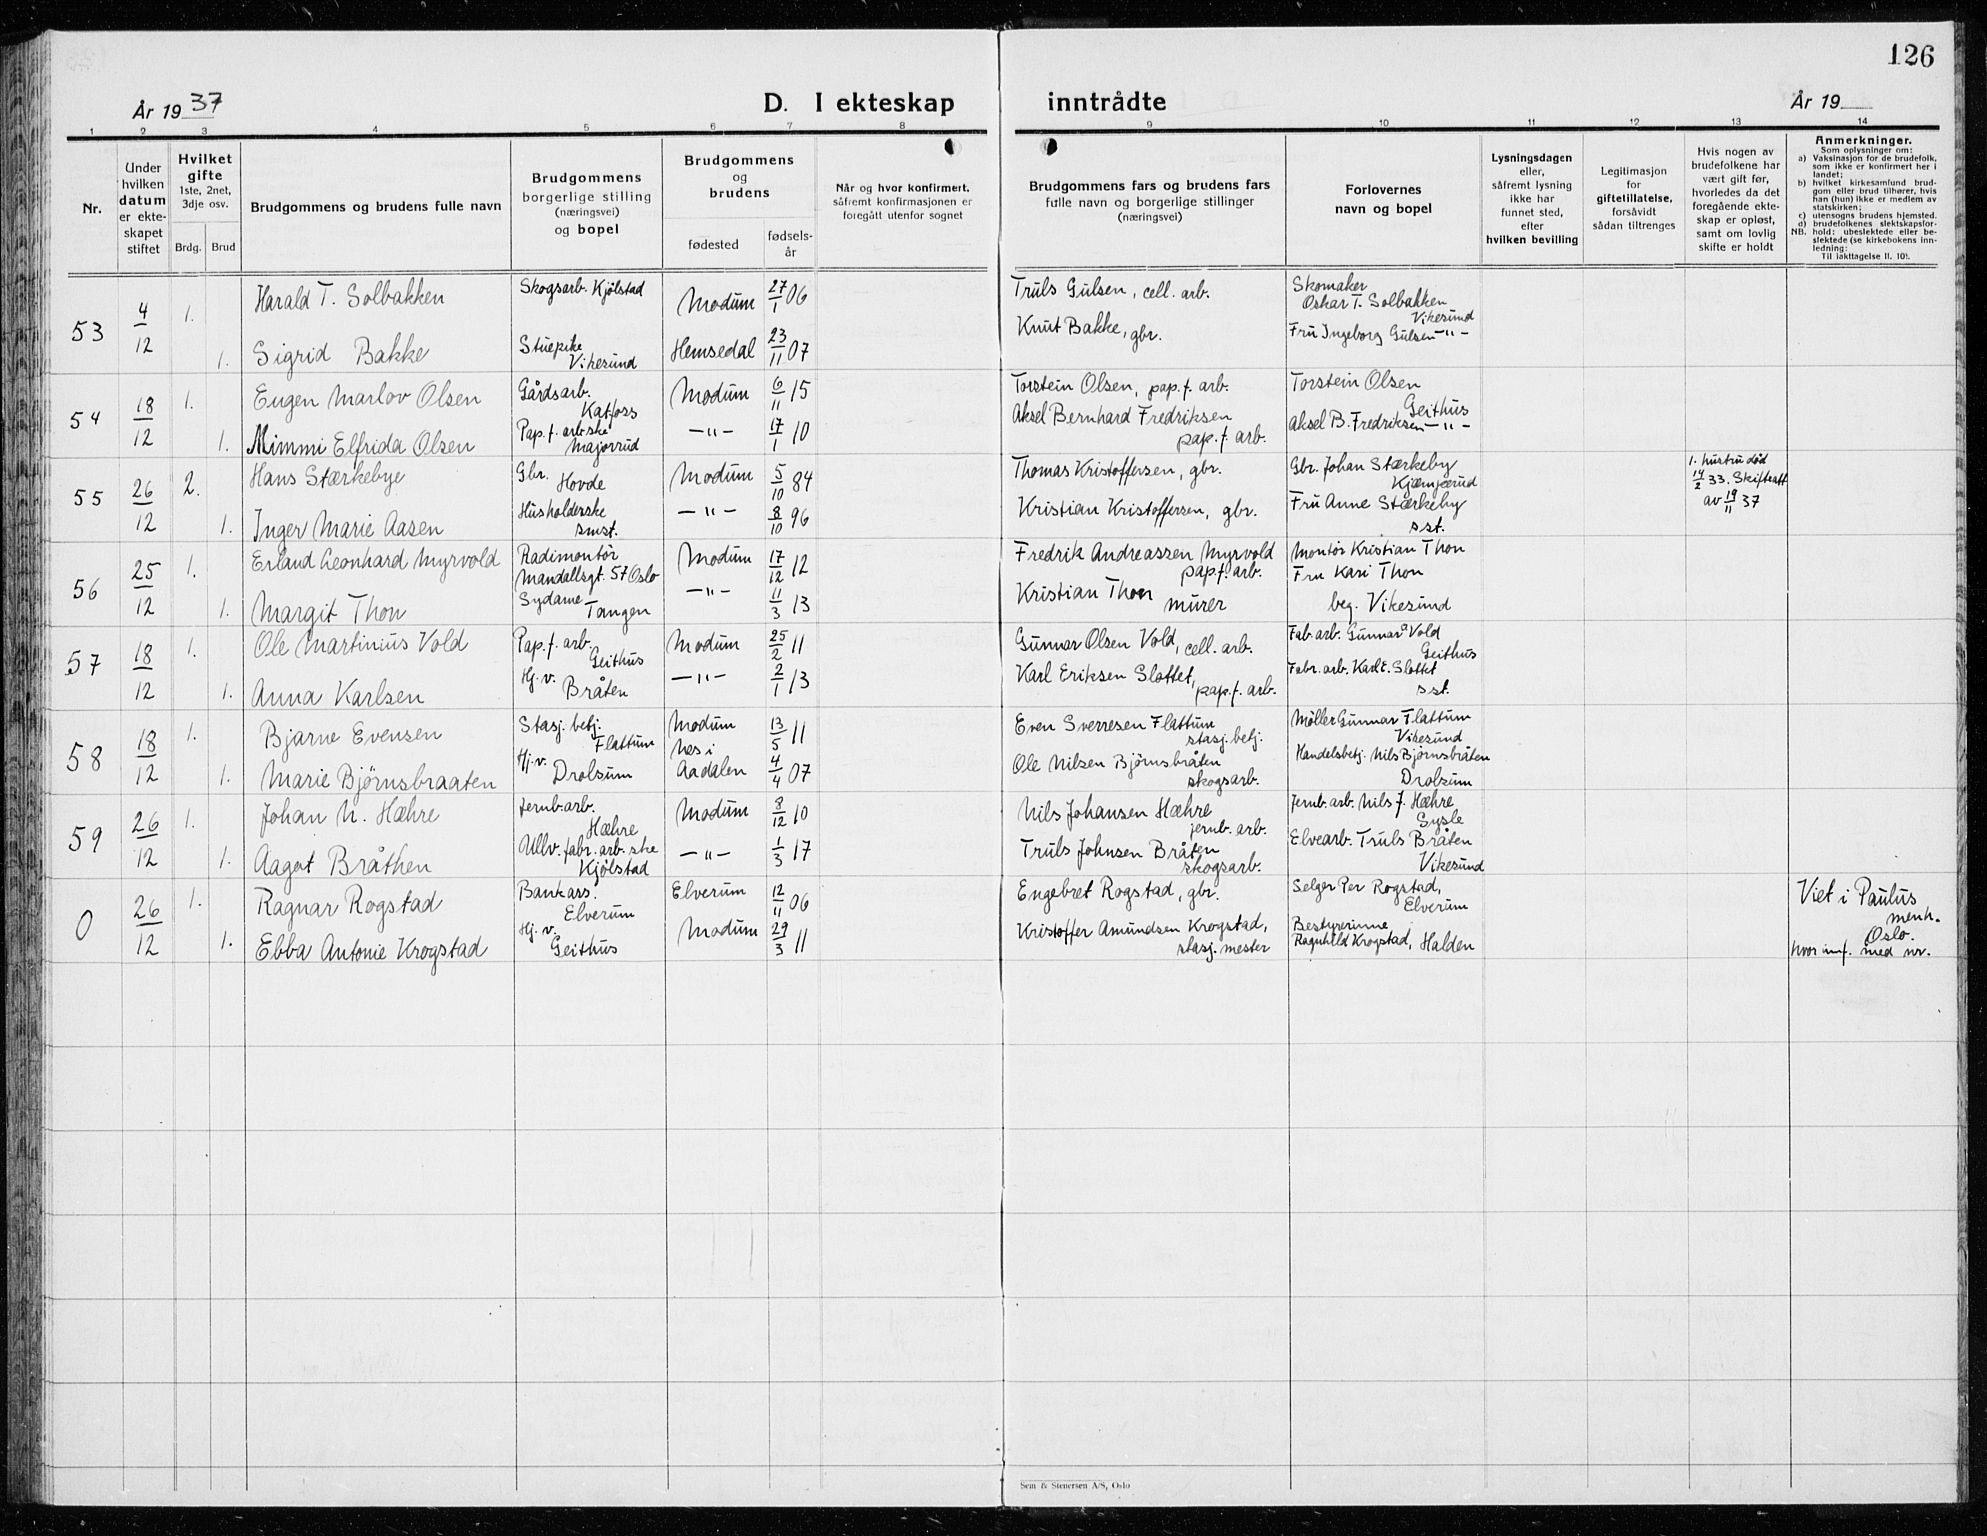 126
År 1937
D. I ekteskap inntrådte
År 19
1 2 3 4 5 6 7 8 9 10 11 12 13 14
Nr.
Under hvilken datum er ekteskapet stiftet
Hvilket gifte
1ste, 2net, 3dje osv.
Brdg. Brud
Brudgommens og brudens fulle navn
Brudgommens borgerlige stilling (næringsvei) og bopel
Brudgommens og brudens
fødested
fødselsår
Når og hvor konfirmert, såfremt konfirmasjonen er foregått utenfor sognet
Brudgommens fars og brudens fars fulle navn og borgerlige stillinger (næringsvei)
Forlovernes navn og bopel
Lysningsdagen eller, såfremt lysning ikke har funnet sted, efter hvilken bevilling
Legitimasjon for giftetillatelse, forsåvidt sådan tiltrenges
Hvis nogen av brudefolkene har vært gift før, hvorledes da det foregående ekteskap er opløst, samt om lovlig skifte er holdt
Anmerkninger.
Som oplysninger om:
a) Vaksinasjon for de brudefolk, som ikke er konfirmert her i landet;
b) hvilket kirkesamfund brudgom eller brud tilhører, hvis han (hun) ikke er medlem av statskirken;
c) utensogns brudens hjemsted.
d) brudefolkenes slektskapsforhold: ubeslektede eller beslektede (se kirkebokens innledning:
NB.
Til iakttagelse II. 10).
53 4/12 1. Harald T. Solbakken Skogsarb. Kjölstad Modum 27/1 06 Truls Gulsen, cell. arb. Skomaker Oskar T. Solbakken Vikesund
1. Sigrid Bakke Stuepike Vikesund Hemsedal 23/11 07 Knut Bakke, gbr. Fru Ingeborg Gulsen -"-
54 18/12 1. Eugen Marlov Olsen Gårdsarb. Katfoss Modum 6/11 15 Torstein Olsen, pap.f. arb. Torstein Olsen Geithus
1. Mimmi Elfrida Olsen Pap.f. arb.ske Majorrud -"- 17/1 10 Aksel Bernhard Fredriksen pap.f. arb. Aksel B. Fredriksen -"-
55 26/12 2. Hans Stærkebye Gbr. Hovde Modum 5/10 84 Thomas Kristoffersen, gbr. Gbr. Johan Stærkeby Kjæmperud 1. hustru død 14/2 33. Skifteatt av 19/11 37
1. Inger Marie Aasen Husholderske smst. -"- 8/10 96 Kristian Kristoffersen, gbr. Fru Anne Stærkeby sst.
56 25/12 1. Erland Leonhard Myrvold Radimontör Mandallsgt. 57 Oslo Modum 17/12 12 Fredrik Andreassen Myrvold pap.f. arb. Montör Kristian Thon
1. Margit Thon Sydame Tangen -"- 11/3 13 Kristian Thon murer Fru Kari Thon beg. Vikesund
57 18/12 1. Ole Martinius Vold Pap.f. arb. Geithus Modum 25/2 11 Gunnar Olsen Vold, cell. arb. Fab. arb. Gunnar Vold Geithus
1. Anna Karlsen Hj. v. Bråten -"- 2/1 13 Karl Eriksen Slottet, pap.f. arb. Fabr. arb. Karl E. Slottet sst.
58 18/12 1. Bjarne Evensen Stasj. betj. Flattum Modum 13/5 11 Even Sverresen Flattum stasj. betj. Möller Gunnar Flattum Vikesund
1. Marie Bjørnsbraaten Hj. v. Drolsum Nes i Aadalen 4/4 07 Ole Nilsen Bjørnsbråten skogsarb. Handelsbetj. Nils Bjørnsbråten Drolsum
59 26/12 1. Johan N. Hæhre Jernb. arb. Hæhre Modum 8/12 10 Nils Johansen Hæhre jernb. arb. Jernb. arb. Nils J. Hæhre Sysle
1. Aagot Bråthen Ullv. fabr. arb. ske Kjölstad -"- 1/3 17 Truls Johnsen Bråten skogsarb. Elvearb. Truls Bråten Vikesund
0 26/12 1. Ragnar Rogstad Bankass. Elverum Elverum 12/11 06 Engebret Rogstad, gbr. Selger Per Rogstad, Elverum Viet i Paulus menh. Oslo. hvor innf. med nr.
1. Ebba Antonie Krogstad Hj. v. Geithus Modum 29/3 11 Kristoffer Amundsen Krogstad, stasj. mester Bestyrerinne Ragnhild Krogstad, Halden
Sem & Stenersen A/S, Oslo